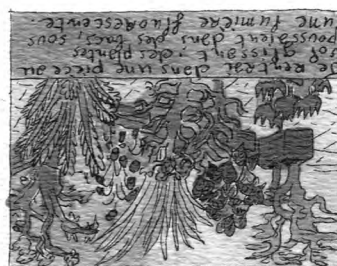 Je rentrai dans une pièce au
sol glissant, des plantes
poussaient dans des bacs, sous
une lumière fluorescente.